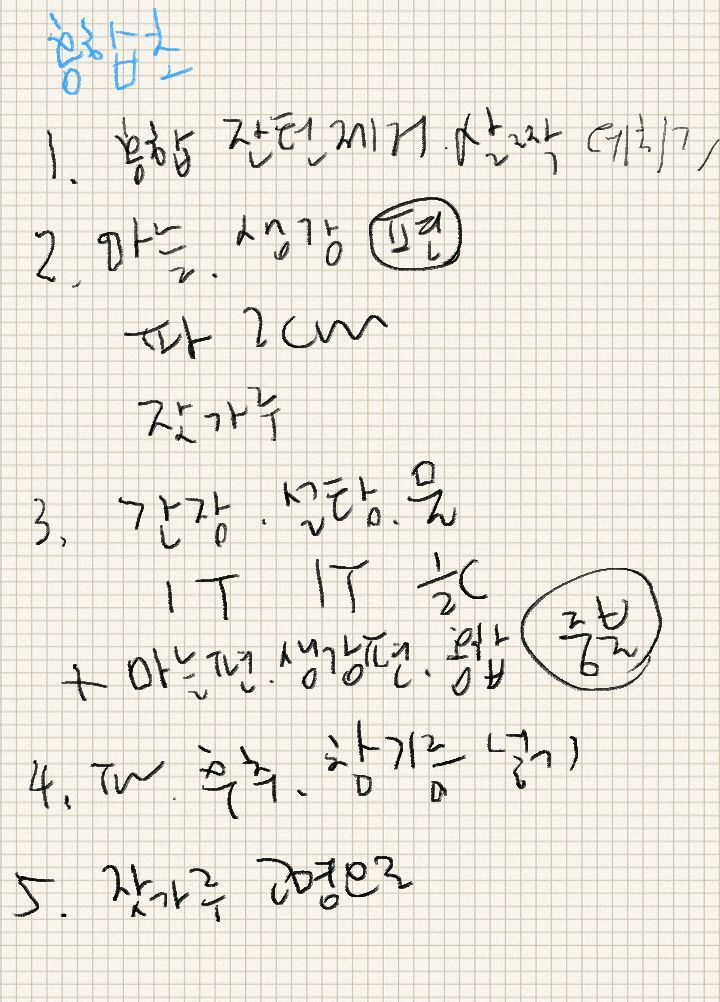 홍합초
1. 홍합 잔털제거. 살짝 데치기
2. 마늘. 생강 편
파 2cm
잣가루
3. 간장. 설탕. 물
1T 1T ½C
+ 마늘편. 생강편. 홍합 중불
4. 파. 후추. 참기름 넣기
5. 잣가루 고명으로